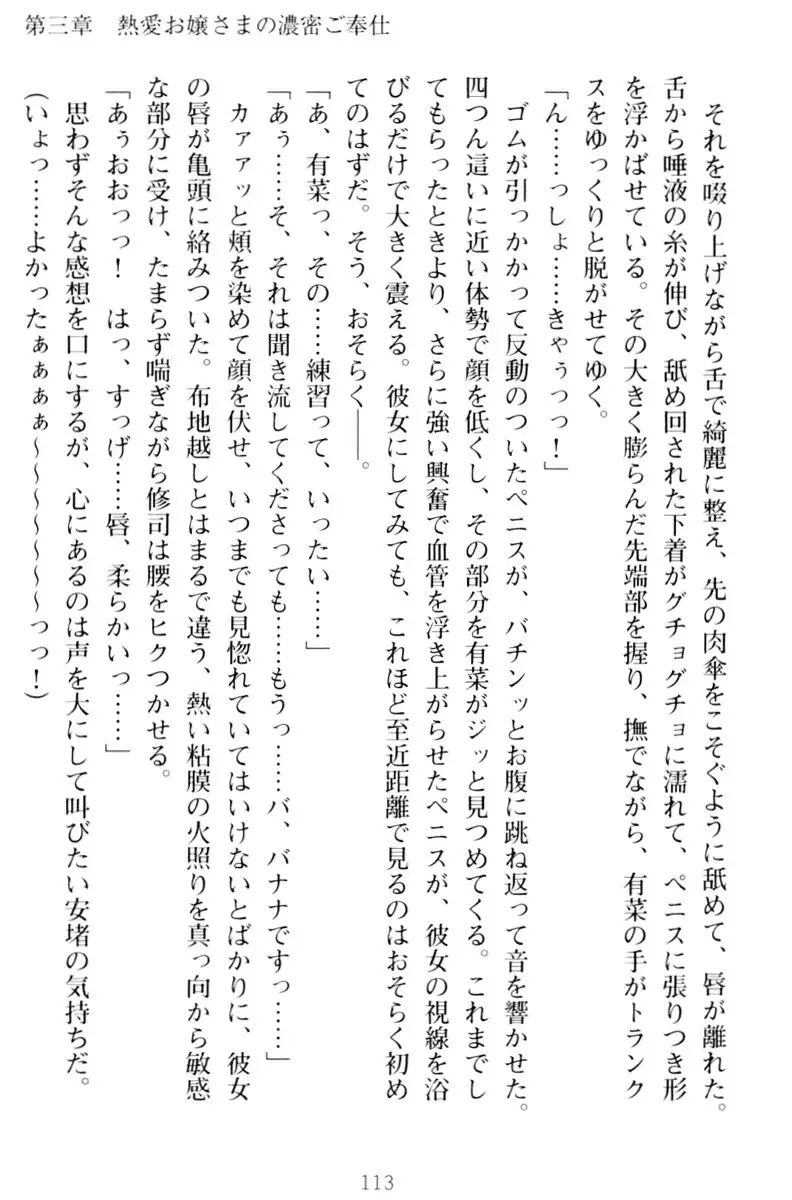 第三章　熱愛お嬢さまの濃密ご奉仕
それを啜り上げながら舌で綺麗に整え、先の肉傘をこそぐように舐めて、唇が離れた。
舌から唾液の糸が伸び、舐め回された下着がグチョグチョに濡れて、ペニスに張りつき形
を浮かばせている。その大きく膨らんだ先端部を握り、撫でながら、有菜の手がトランク
スをゆっくりと脱がせてゆく。
「ん……っしょ……きゃぅっっ！」
ゴムが引っかかって反動のついたペニスが、バチンッとお腹に跳ね返って音を響かせた。
四つん這いに近い体勢で顔を低くし、その部分を有菜がジッと見つめてくる。これまでし
てもらったときより、さらに強い興奮で血管を浮き上がらせたペニスが、彼女の視線を浴
びるだけで大きく震える。彼女にしてみても、これほど至近距離で見るのはおそらく初め
てのはずだ。そう、おそらく――。
「あ、有菜っ、その……練習って、いったい……」
「あぅ……そ、それは聞き流してくださっても……もうっ……バ、バナナですっ……」
カァァッと頬を染めて顔を伏せ、いつまでも見惚れていてはいけないとばかりに、彼女
の唇が亀頭に絡みついた。布地越しとはまるで違う、熱い粘膜の火照りを真っ向から敏感
な部分に受け、たまらず喘ぎながら修司は腰をヒクつかせる。
「あぅおおっっ！　はっ、すっげ……唇、柔らかいっ……」
思わずそんな感想を口にするが、心にあるのは声を大にして叫びたい安堵の気持ちだ。
（いょっ……よかったぁぁぁぁ～～～～～～～っっ！）
113